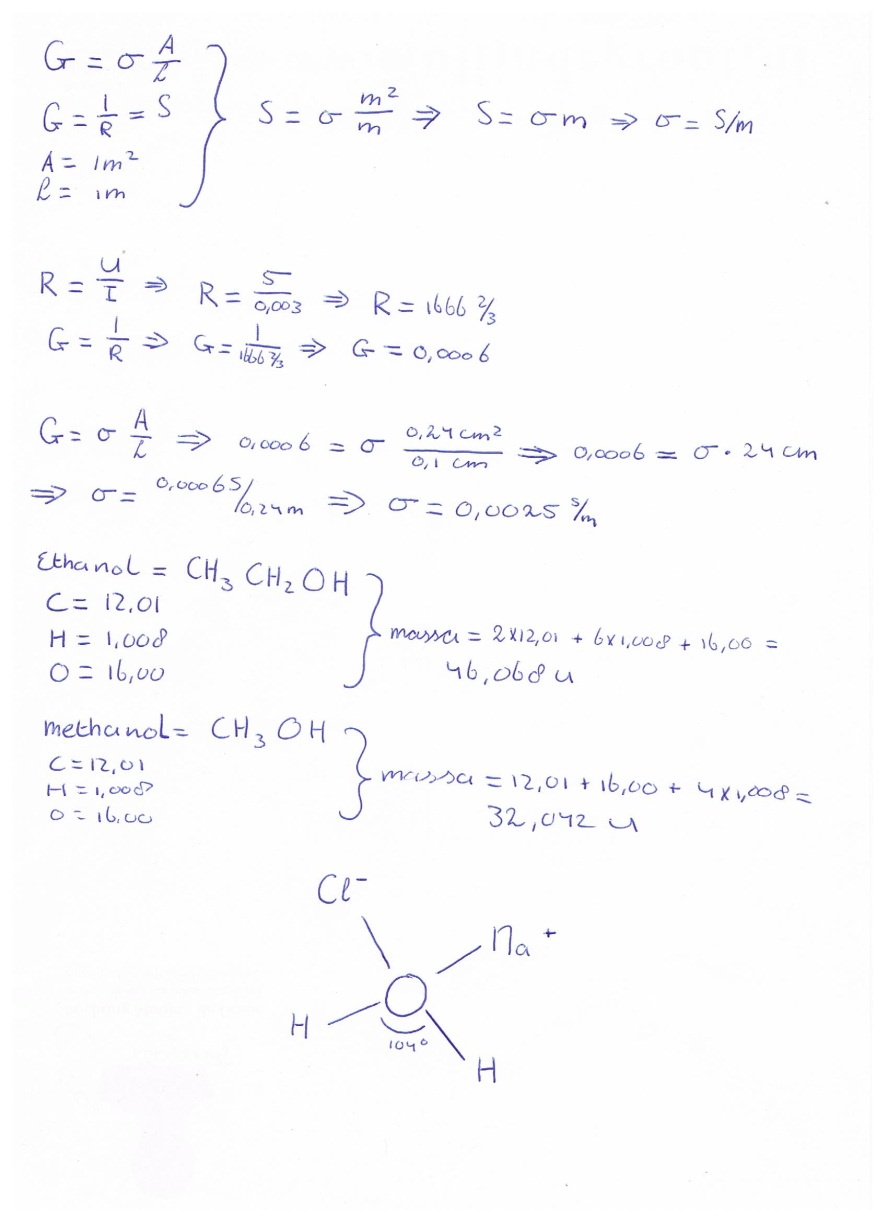 G = σ A/ℓ
G = 1/R = S
A = 1m²
ℓ = 1m
S = σ m²/m ⇒ S = σ m ⇒ σ = S/m
R = U/I ⇒ R = 5/0,003 ⇒ R = 1666 2/3
G = 1/R ⇒ G = 1/1666 2/3 ⇒ G = 0,0006
G = σ A/L ⇒ 0,0006 = σ 0,24 cm²/0,1 cm ⇒ 0,0006 = σ · 24 cm
⇒ σ = 0,0006S/0,24m ⇒ σ = 0,0025 S/m
Ethanol = CH₃ CH₂ OH
C = 12,01
H = 1,008
O = 16,00
massa = 2×12,01 + 6×1,008 + 16,00 =
46,068 u
methanol = CH₃ OH
C = 12,01
H = 1,008
O = 16,00
massa = 12,01 + 16,00 + 4×1,008 =
32,042 u
Cl⁻
Na⁺
O
H
104°
H